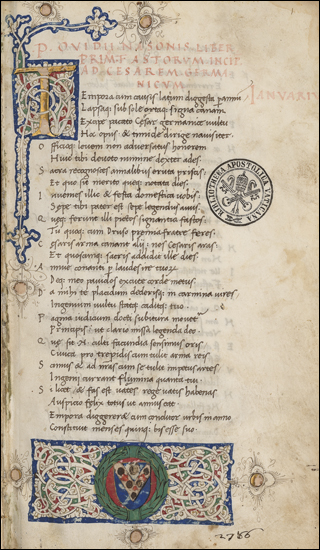 P. OVIDII NASONIS LIBER
PRIM FASTORUM INCIP.
AD CESAREM GERMA
NICUM
IANUARIU
Tempora cum causis latium digesta per annum
Lapsaq; sub sole ortaq; signa canam
Excipe pacato Cesar germanice vultu
Hoc opus & timide dirige navis iter
Officijs levem non adversatus honorem
Huic tibi devoto numine dexter ades
Sacra recognosces annalibus eruta priscis
Et quo sit merito queq; notata dies
Invenies illic & festa domestica vobis
Sepe tibi pater est sepe legendus avus
Queq; ferunt illi pictos signantia fastos
Tu quoq; cum Druso premia fratre feres
Cesaris arma canant alij: nos Cesaris aras
Et quoscunq; sacris addidit ille dies
Annue conanti p laudes ire tuorum
Deq; meo pavidos excute corde metus
Da mihi te placidum dederis in carmina vires
Ingenium vultu statq; caditq; tuo
Pagina iudicium docti subitura movetur
Principis: ut clario missa legenda deo
Que sit culti facundia sensimus oris
Civica pro trepidis cum tulit arma reis
Scimus & ad nras cum se tulit impetus artes
Ingenij currant flumina quanta tui
Si licet & fas est vates rege vatis habenas
Auspicio felix totus ut annus eat
Tempora digereret cum conditor urbis in anno
Constituit menses quinq; bis esse suo.
BIBLIOTHECA APOSTOLICA VATICANA